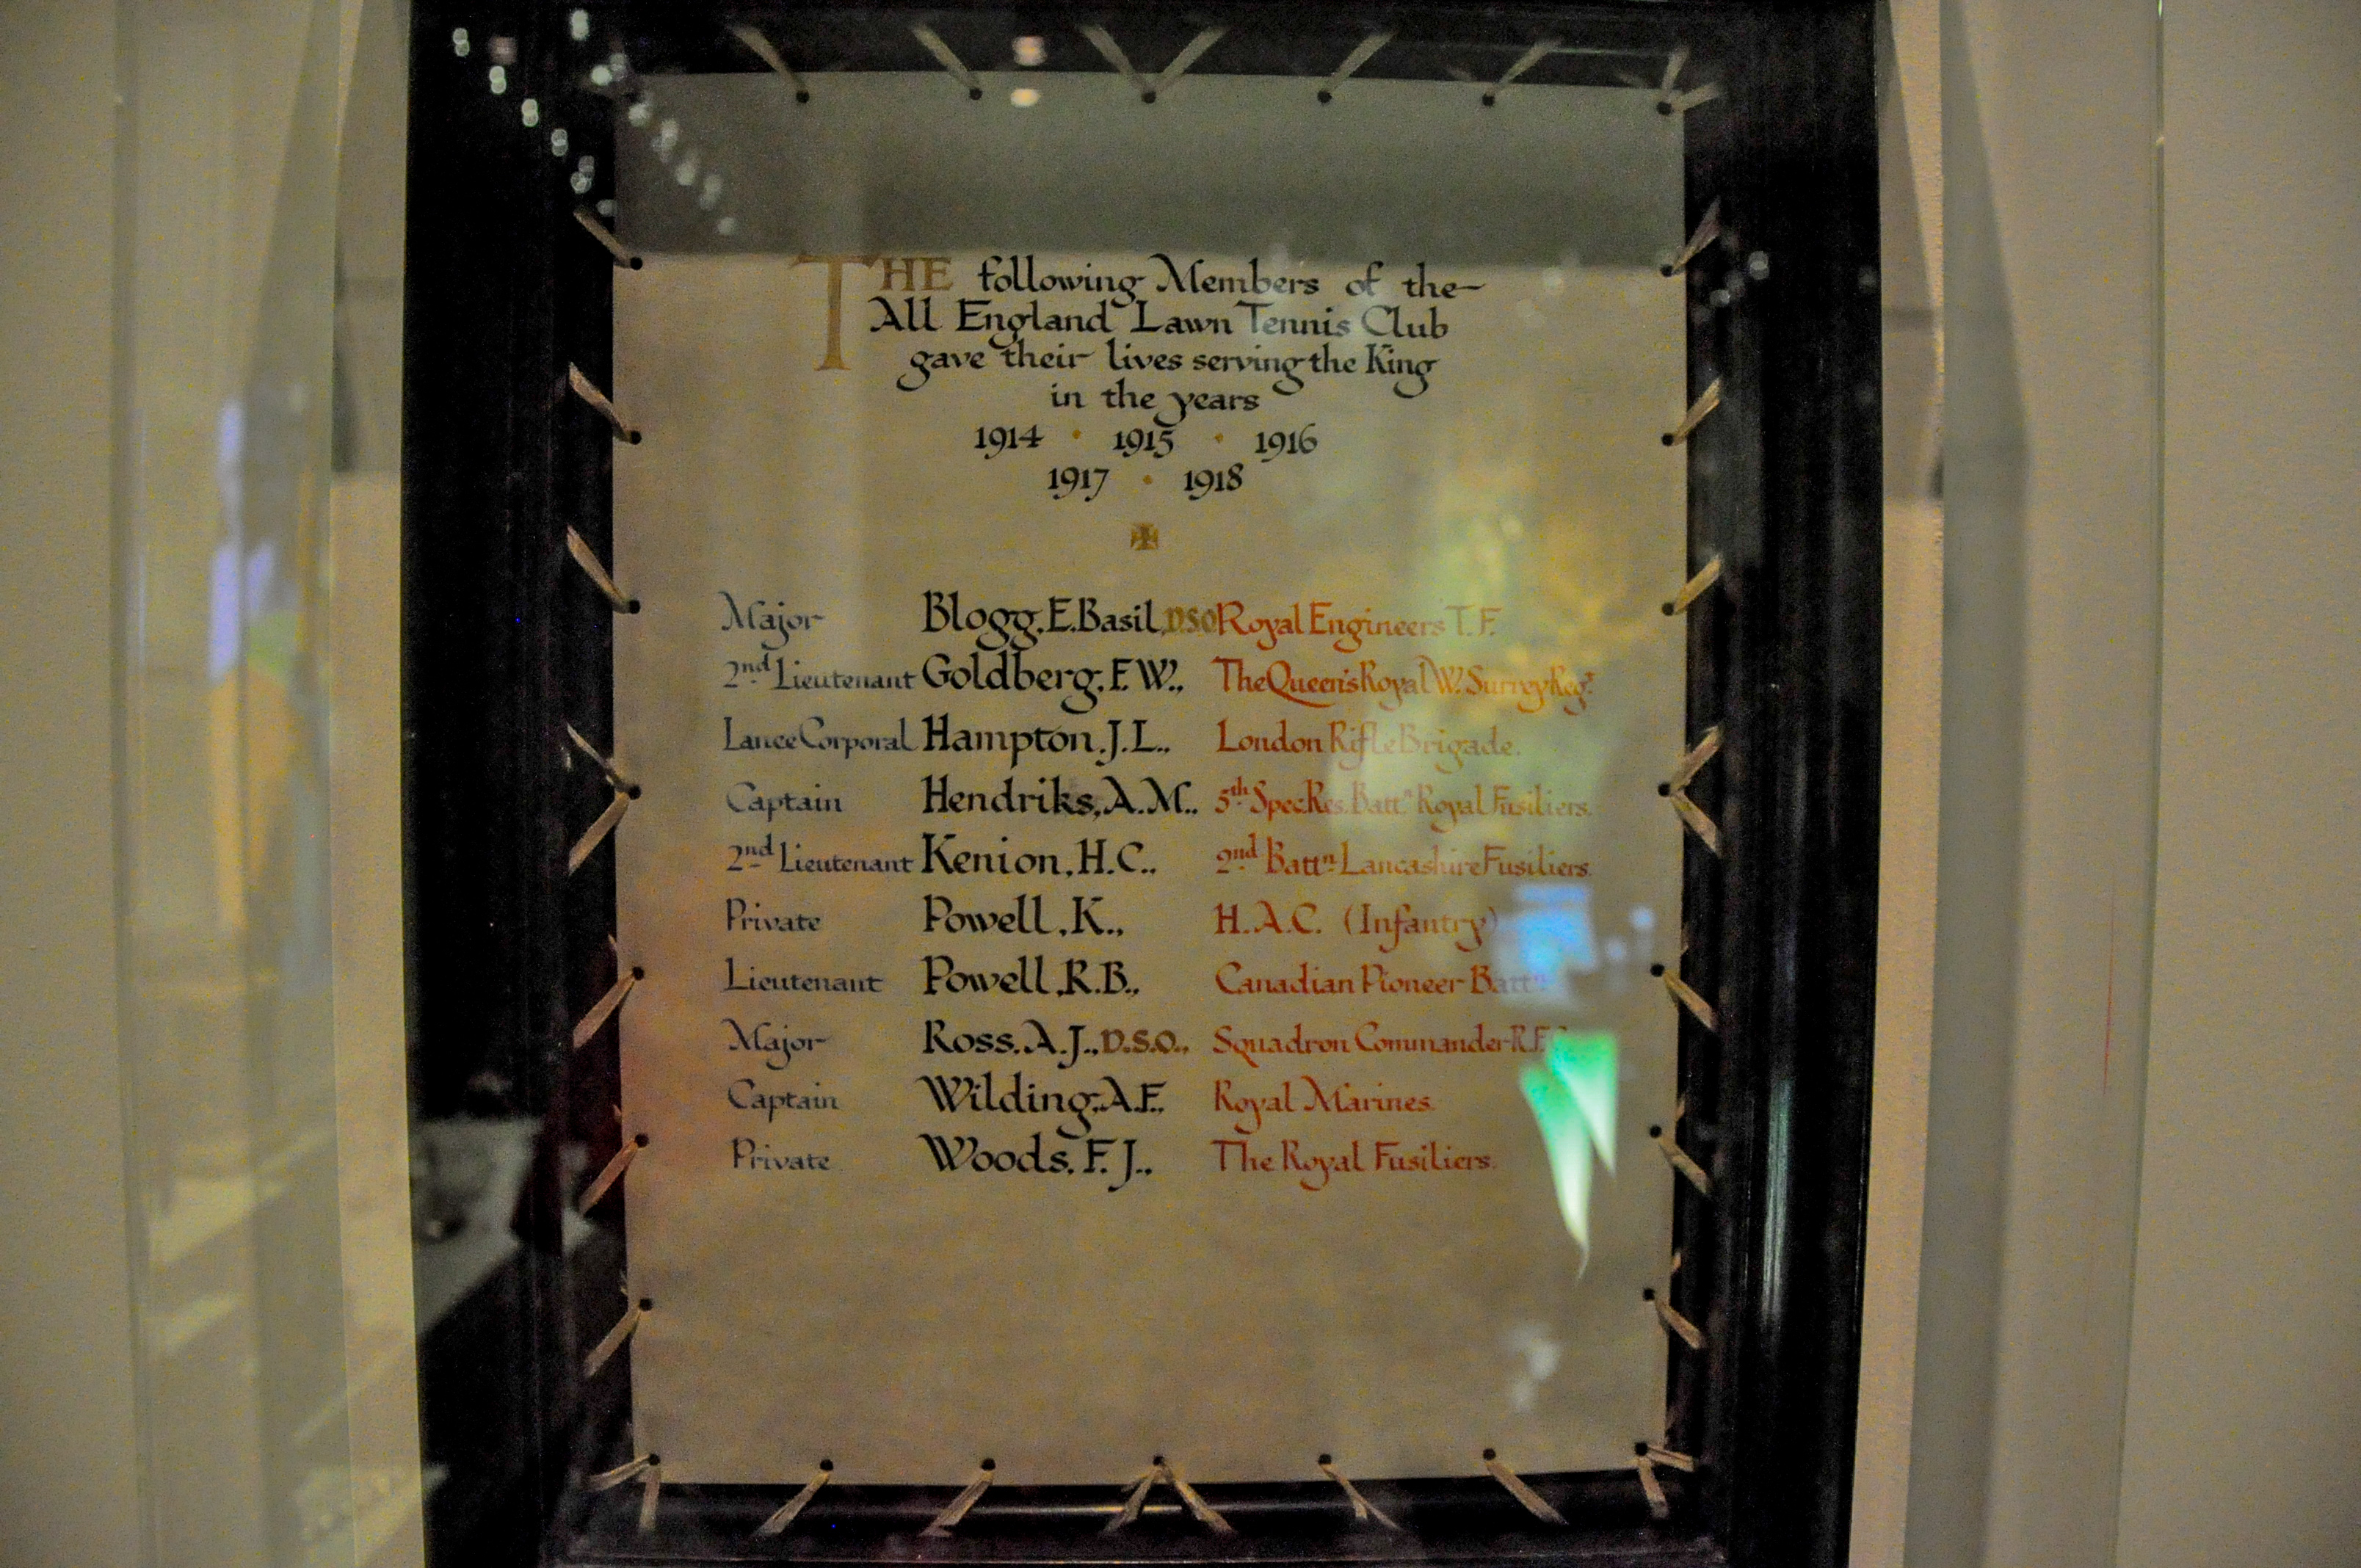 THE following Members of the
All England Lawn Tennis Club
gave their lives serving the King
in the years
1914 · 1915 · 1916
1917 · 1918
Major Blogg, E. Basil, D.S.O. Royal Engineers T. F.
2nd Lieutenant Goldberg, F. W., The Queen's Royal W. Surrey Regt.
Lance Corporal Hampton, J. L., London Rifle Brigade.
Captain Hendriks, A. M., 5th Spec. Res. Battn Royal Fusiliers.
2nd Lieutenant Kenion, H. C., 2nd Battn Lancashire Fusiliers.
Private Powell, K., H. A. C. (Infantry)
Lieutenant Powell, R. B., Canadian Pioneer Battn
Major Ross, A. J., D.S.O., Squadron Commander R.F.
Captain Wilding, A. F., Royal Marines.
Private Woods, F. J., The Royal Fusiliers.